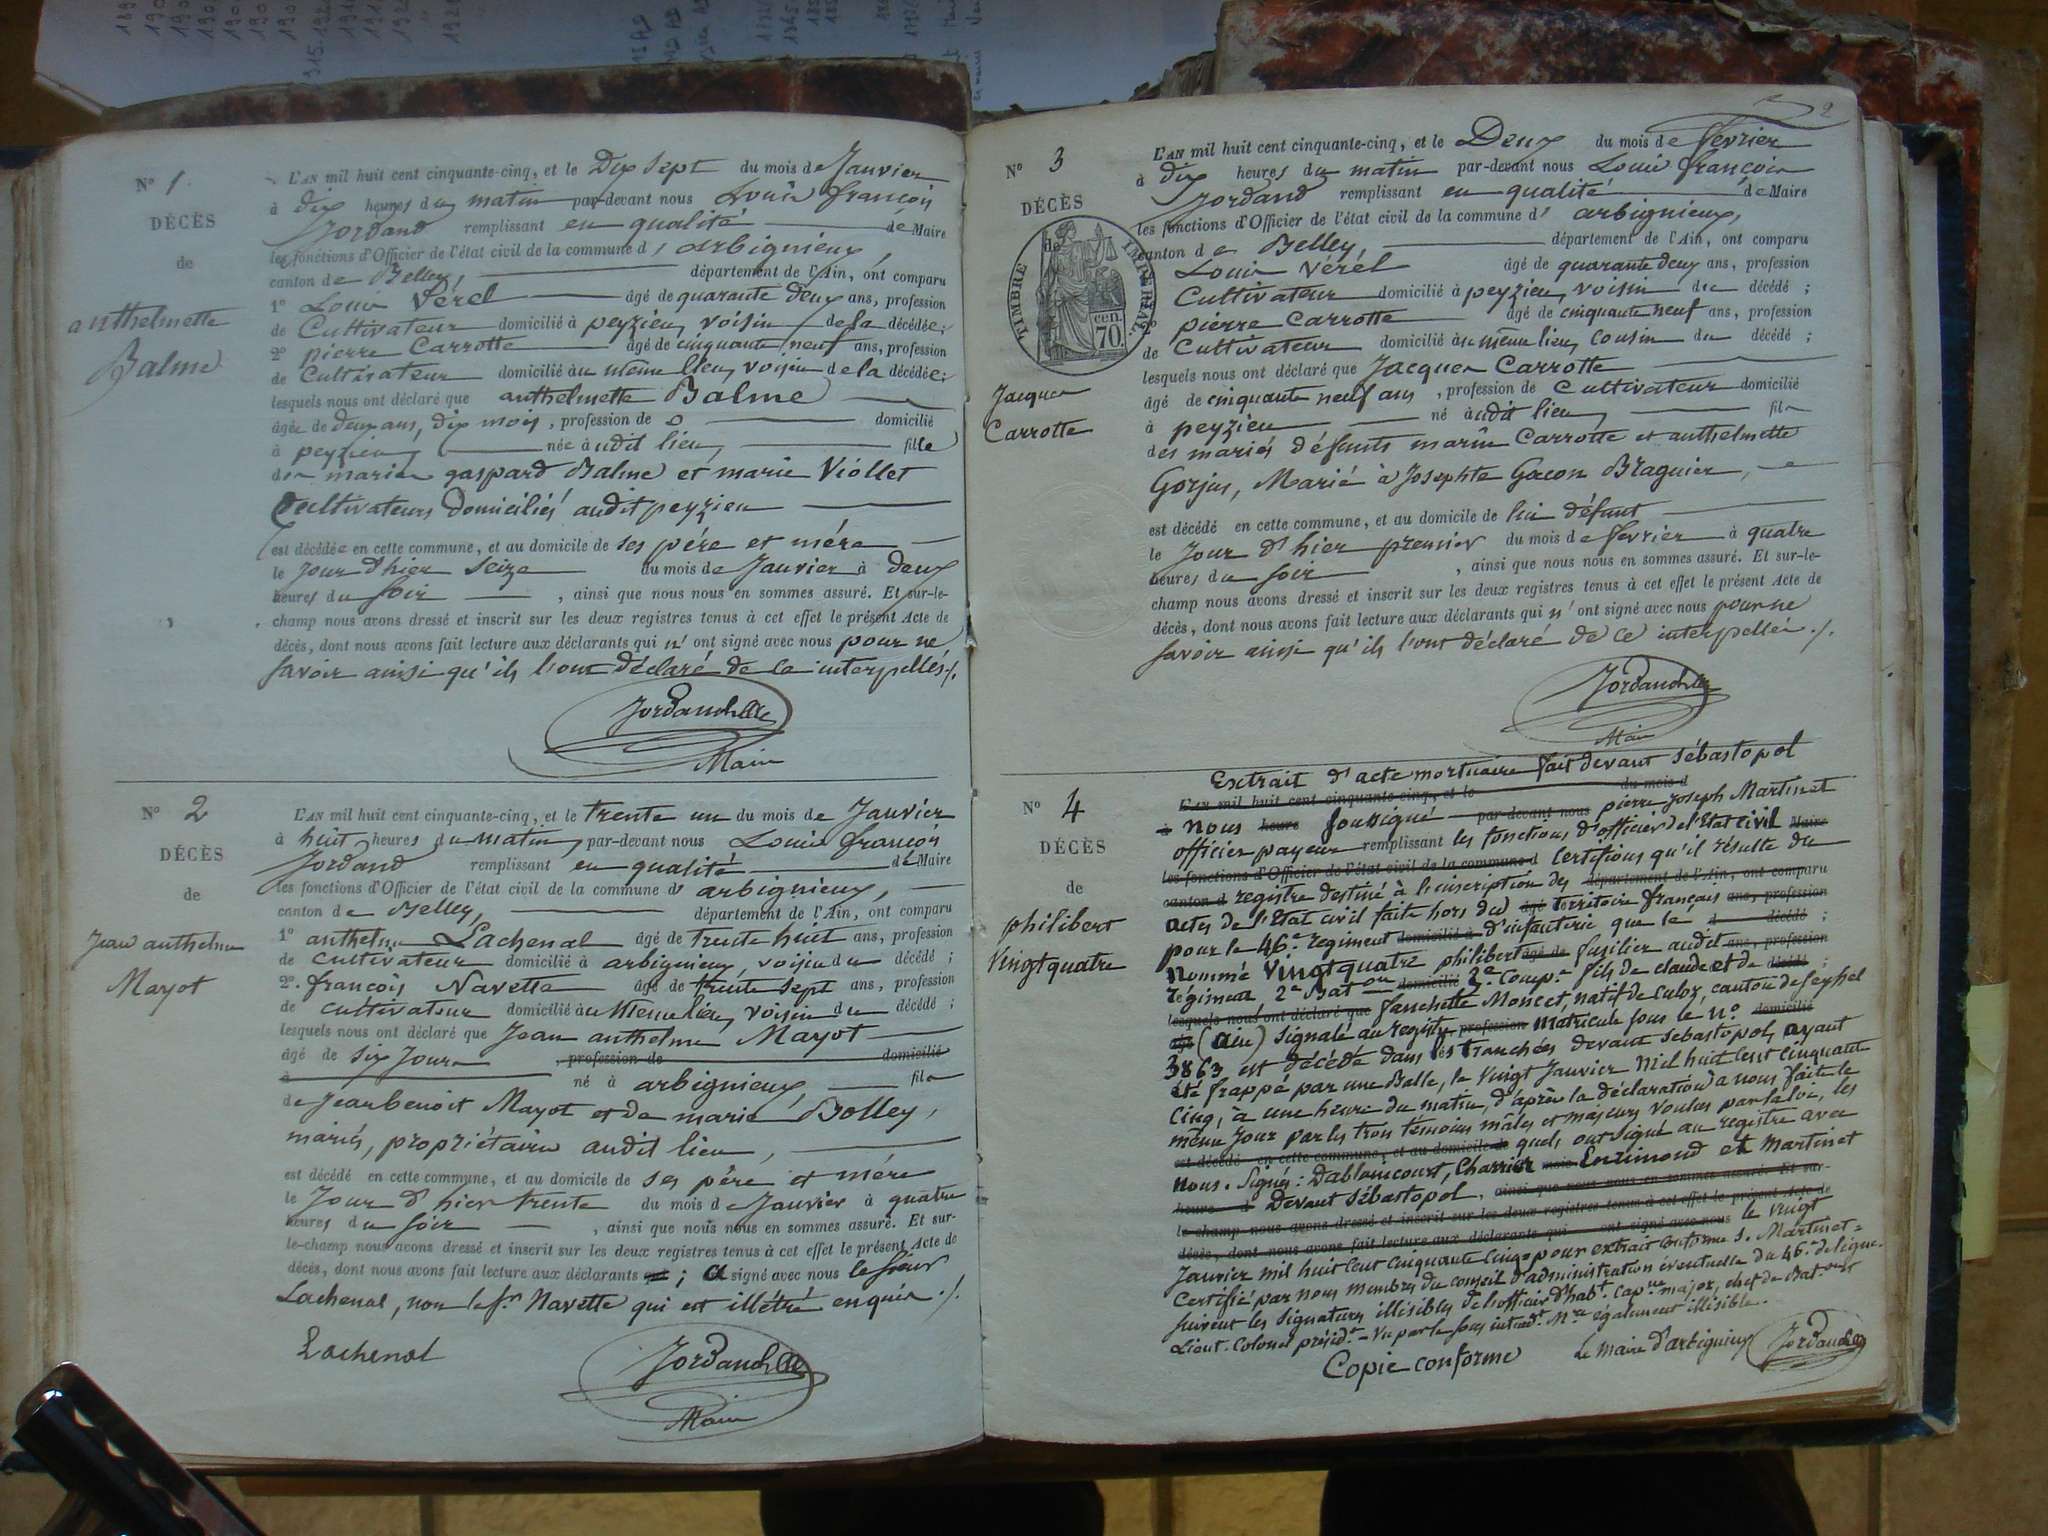 N° 1
DÉCÈS
de
anthelmette
Balme
L'AN mil huit cent cinquante-cinq, et le Dix sept du mois de Janvier
à dix heures du matin par-devant nous Louis françois
Jordand remplissant en qualité de Maire
les fonctions d'Officier de l'état civil de la commune d'arbignieux,
canton de Belley, département de l'Ain, ont comparu
1° Louis Vérel âgé de quarante deux ans, profession
de Cultivateur domicilié à peyzieu, voisin de la décédée;
2° pierre Carrotte âgé de cinquante neuf ans, profession
de Cultivateur domicilié au même lieu, voisin de la décédée;
lesquels nous ont déclaré que anthelmette Balme
âgée de deux ans, dix mois, profession de domicilié
à peyzieu née audit lieu, fille
des mariés gaspard Balme et marie Viollet
Cultivateurs Domiciliés audit peyzieu
est décédée en cette commune, et au domicile de ses pére et mére
le Jour d'hier seize du mois de Janvier à deux
heures du soir, ainsi que nous nous en sommes assuré. Et sur-le-
champ nous avons dressé et inscrit sur les deux registres tenus à cet effet le présent Acte de
décès, dont nous avons fait lecture aux déclarants qui n'ont signé avec nous pour ne
savoir ainsi qu'ils l'ont déclaré de ce interpellés./.
Maire
N° 2
DÉCÈS
de
Jean anthelme
Mayot
L'AN mil huit cent cinquante-cinq, et le trente un du mois de Janvier
à huit heures du matin, par-devant nous Louis françois
Jordand remplissant en qualité de Maire
les fonctions d'Officier de l'état civil de la commune d'arbignieux,
canton de Belley, département de l'Ain, ont comparu
1° anthelme Lachenal âgé de trente huit ans, profession
de cultivateur domicilié à arbignieux, voisin du décédé;
2°. françois Navette âgé de trente sept ans, profession
de cultivateur domicilié au Meme lieu, voisin du décédé;
lesquels nous ont déclaré que Jean anthelme Mayot
âgé de six Jours, profession de domicilié
à né à arbignieux, fils
de Jean benoit Mayot et de marie Bolley,
mariés, propriétaires audit lieu,
est décédé en cette commune, et au domicile de ses pére et mére
le Jour d'hier trente du mois de Janvier à quatre
heures du soir, ainsi que nous nous en sommes assuré. Et sur-
le-champ nous avons dressé et inscrit sur les deux registres tenus à cet effet le présent Acte de
décès, dont nous avons fait lecture aux déclarants qui; a signé avec nous le sieur
Lachenal, non le Sr. Navette qui est illétré enquis./.
Lachenal
Maire
2
N° 3
DÉCÈS
de
TIMBRE IMPÉRIAL
70 cen.
Jacques
Carrotte
L'AN mil huit cent cinquante-cinq, et le Deux du mois de fevrier
à dix heures du matin par-devant nous Louis françois
Jordand remplissant en qualité de Maire
les fonctions d'Officier de l'état civil de la commune d'arbignieux,
canton de Belley, département de l'Ain, ont comparu
Louis Vérél âgé de quarante deux ans, profession
Cultivateur domicilié à peyzieu, voisin du décédé;
pierre Carrotte âgé de cinquante neuf ans, profession
de Cultivateur domicilié au même lieu, cousin du décédé;
lesquels nous ont déclaré que Jacques Carrotte
âgé de cinquante neuf ans, profession de Cultivateur domicilié
à peyzieu né audit lieu, fils
des mariés défunts marin Carrotte et anthelmette
Gorjus, Marié à Josephte Gacon Braguier,
est décédé en cette commune, et au domicile de lui défunt
le Jour d'hier premier du mois de fevrier à quatre
heures du soir, ainsi que nous nous en sommes assuré. Et sur-le-
champ nous avons dressé et inscrit sur les deux registres tenus à cet effet le présent Acte de
décès, dont nous avons fait lecture aux déclarants qui n'ont signé avec nous pour ne
savoir ainsi qu'ils l'ont déclaré de ce interpellés./.
Maire
N° 4
DÉCÈS
de
philibert
Vingtquatre
Extrait d'acte mortuaire fait devant sébastopol
L'AN mil huit cent cinquante-cinq, et le du mois d
à nous heure soussigné par-devant nous pierre Joseph Martinet
officier payeur remplissant les fonctions d'officier de l'Etat civil Maire
les fonctions d'Officier de l'état civil de la commune d Certifions qu'il résulte du
canton d registre destiné à l'inscription des département de l'Ain, ont comparu
actes de l'Etat civil faits hors du âgé territoire français ans, profession
pour le 46e regiment domicilié à d'infanterie que le d décédé;
Nommé Vingtquatre philibert âgé de fusilier audit ans, profession
régiment 2e Baton domicilié 3e Compe fils de claude et de décédé;
lesquels nous ont déclaré que fanchette Moncet, natif de Culoz, canton de seyssel
âgé (ain) signalé au registre profession Matricule sous le n° domicilié
3863 est décédé dans les tranchées devant sebastopol, ayant
été frappé par une Balle, le vingt Janvier mil huit cent cinquante
cinq, à une heure du matin, d'après la déclaration à nous faite le
même Jour par les trois témoins mâles et majeurs voulus par la loi, les
est décédé en cette commune, et au domicile de quels ont signé au registre avec
nous. Signés: Dablaincourt, Charrier mois Entimond et Martinet
heure d Devant sébastopol, ainsi que nous nous en sommes assuré. Et sur-
le-champ nous avons dressé et inscrit sur les deux registres tenus à cet effet le présent Acte de
décès, dont nous avons fait lecture aux déclarants qui ont signé avec nous le vingt
Janvier mil huit cent cinquante cinq = pour extrait conforme s. Martinet =
Certifié par nous membres du conseil d'administration éventuelle du 46e de ligne.
suivent les signatures illisibles de l'officier d'habt. Capne major, chef de Baton et
Lieut. Colonel présidt. = Vu par le sous intendt. Mre également illisible.
Copie conforme Le Maire d'arbignieux